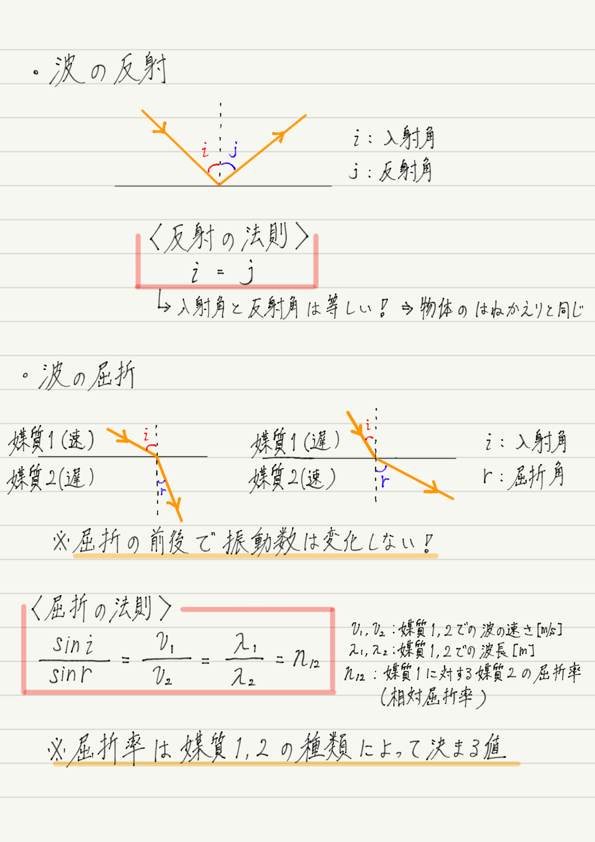 ・波の反射
i j
i：入射角
j：反射角
〈反射の法則〉
i = j
↳入射角と反射角は等しい！⇒物体のはねかえりと同じ
・波の屈折
媒質1(速)
媒質2(遅)
i
r
媒質1(遅)
媒質2(速)
i
r
i：入射角
r：屈折角
※屈折の前後で振動数は変化しない！
〈屈折の法則〉
sin i / sin r = v₁ / v₂ = λ₁ / λ₂ = n₁₂
v₁, v₂：媒質1,2での波の速さ[m/s]
λ₁, λ₂：媒質1,2での波長[m]
n₁₂：媒質1に対する媒質2の屈折率
(相対屈折率)
※屈折率は媒質1,2の種類によって決まる値